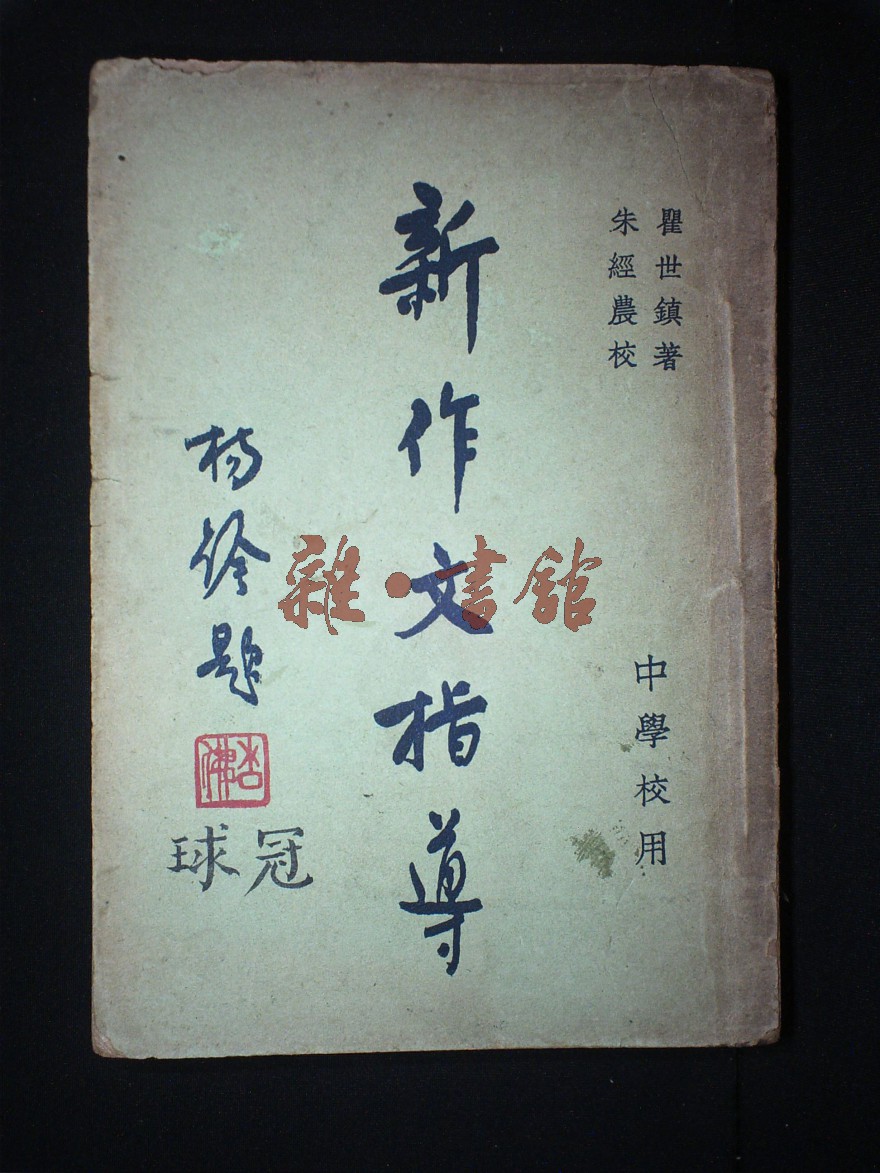 瞿世鎮著
朱經農校
中學校用
新作文指導
楊銓題
杏佛
冠球
雜·書館